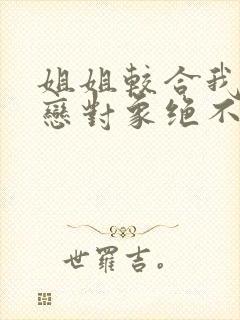 姐姐較合我
戀對象绝不
世羅吉。